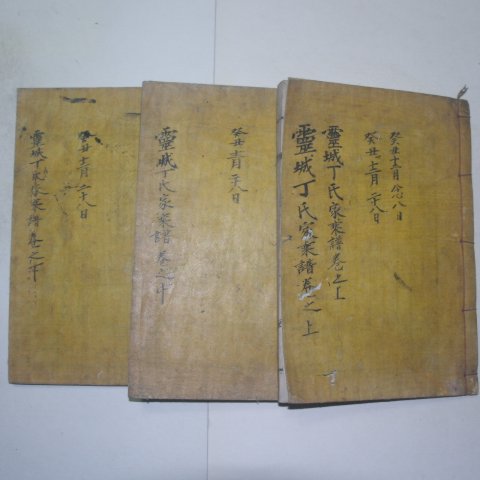 癸丑十二月念八日
癸丑十二月二十八日
靈城丁氏家乘譜卷之上
靈城丁氏家乘譜卷之上
癸丑十二月二十八日
靈城丁氏家乘譜卷之中
癸丑十二月二十八日
靈城丁氏家乘譜卷之下